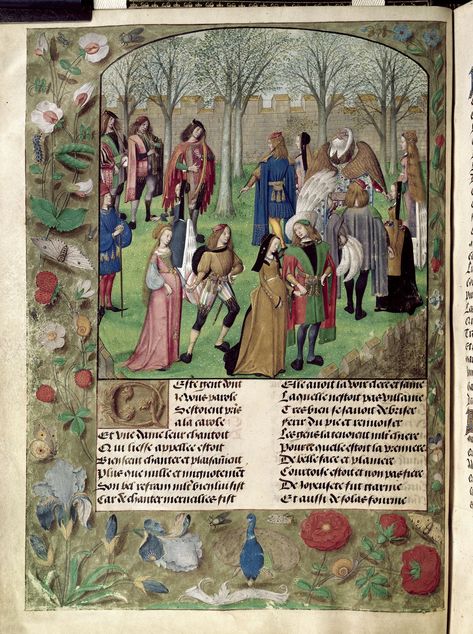 Ceste gent dont
Je vous parole
Sestoient pris
a la carole
Et vne dame leur chantoit
Qui liesse appellee estoit
Bien seut chanter et plaisanment
Plus que nulle et mignotement
Son bel refrain mlt bien luy sist
Car de chanter merueilles fist
Elle auoit la voix clere et saine
Laquelle nestoit pas villaine
Tres bien se sauoit debriser
ferir du pie et renuoiser
Les gens la tenoient mlt chiere
Pource quelle estoit la premiere
De belle face et planiere
Courtoise estoit et non pas fiere
De fut garnie
Et aussi de solas fournie